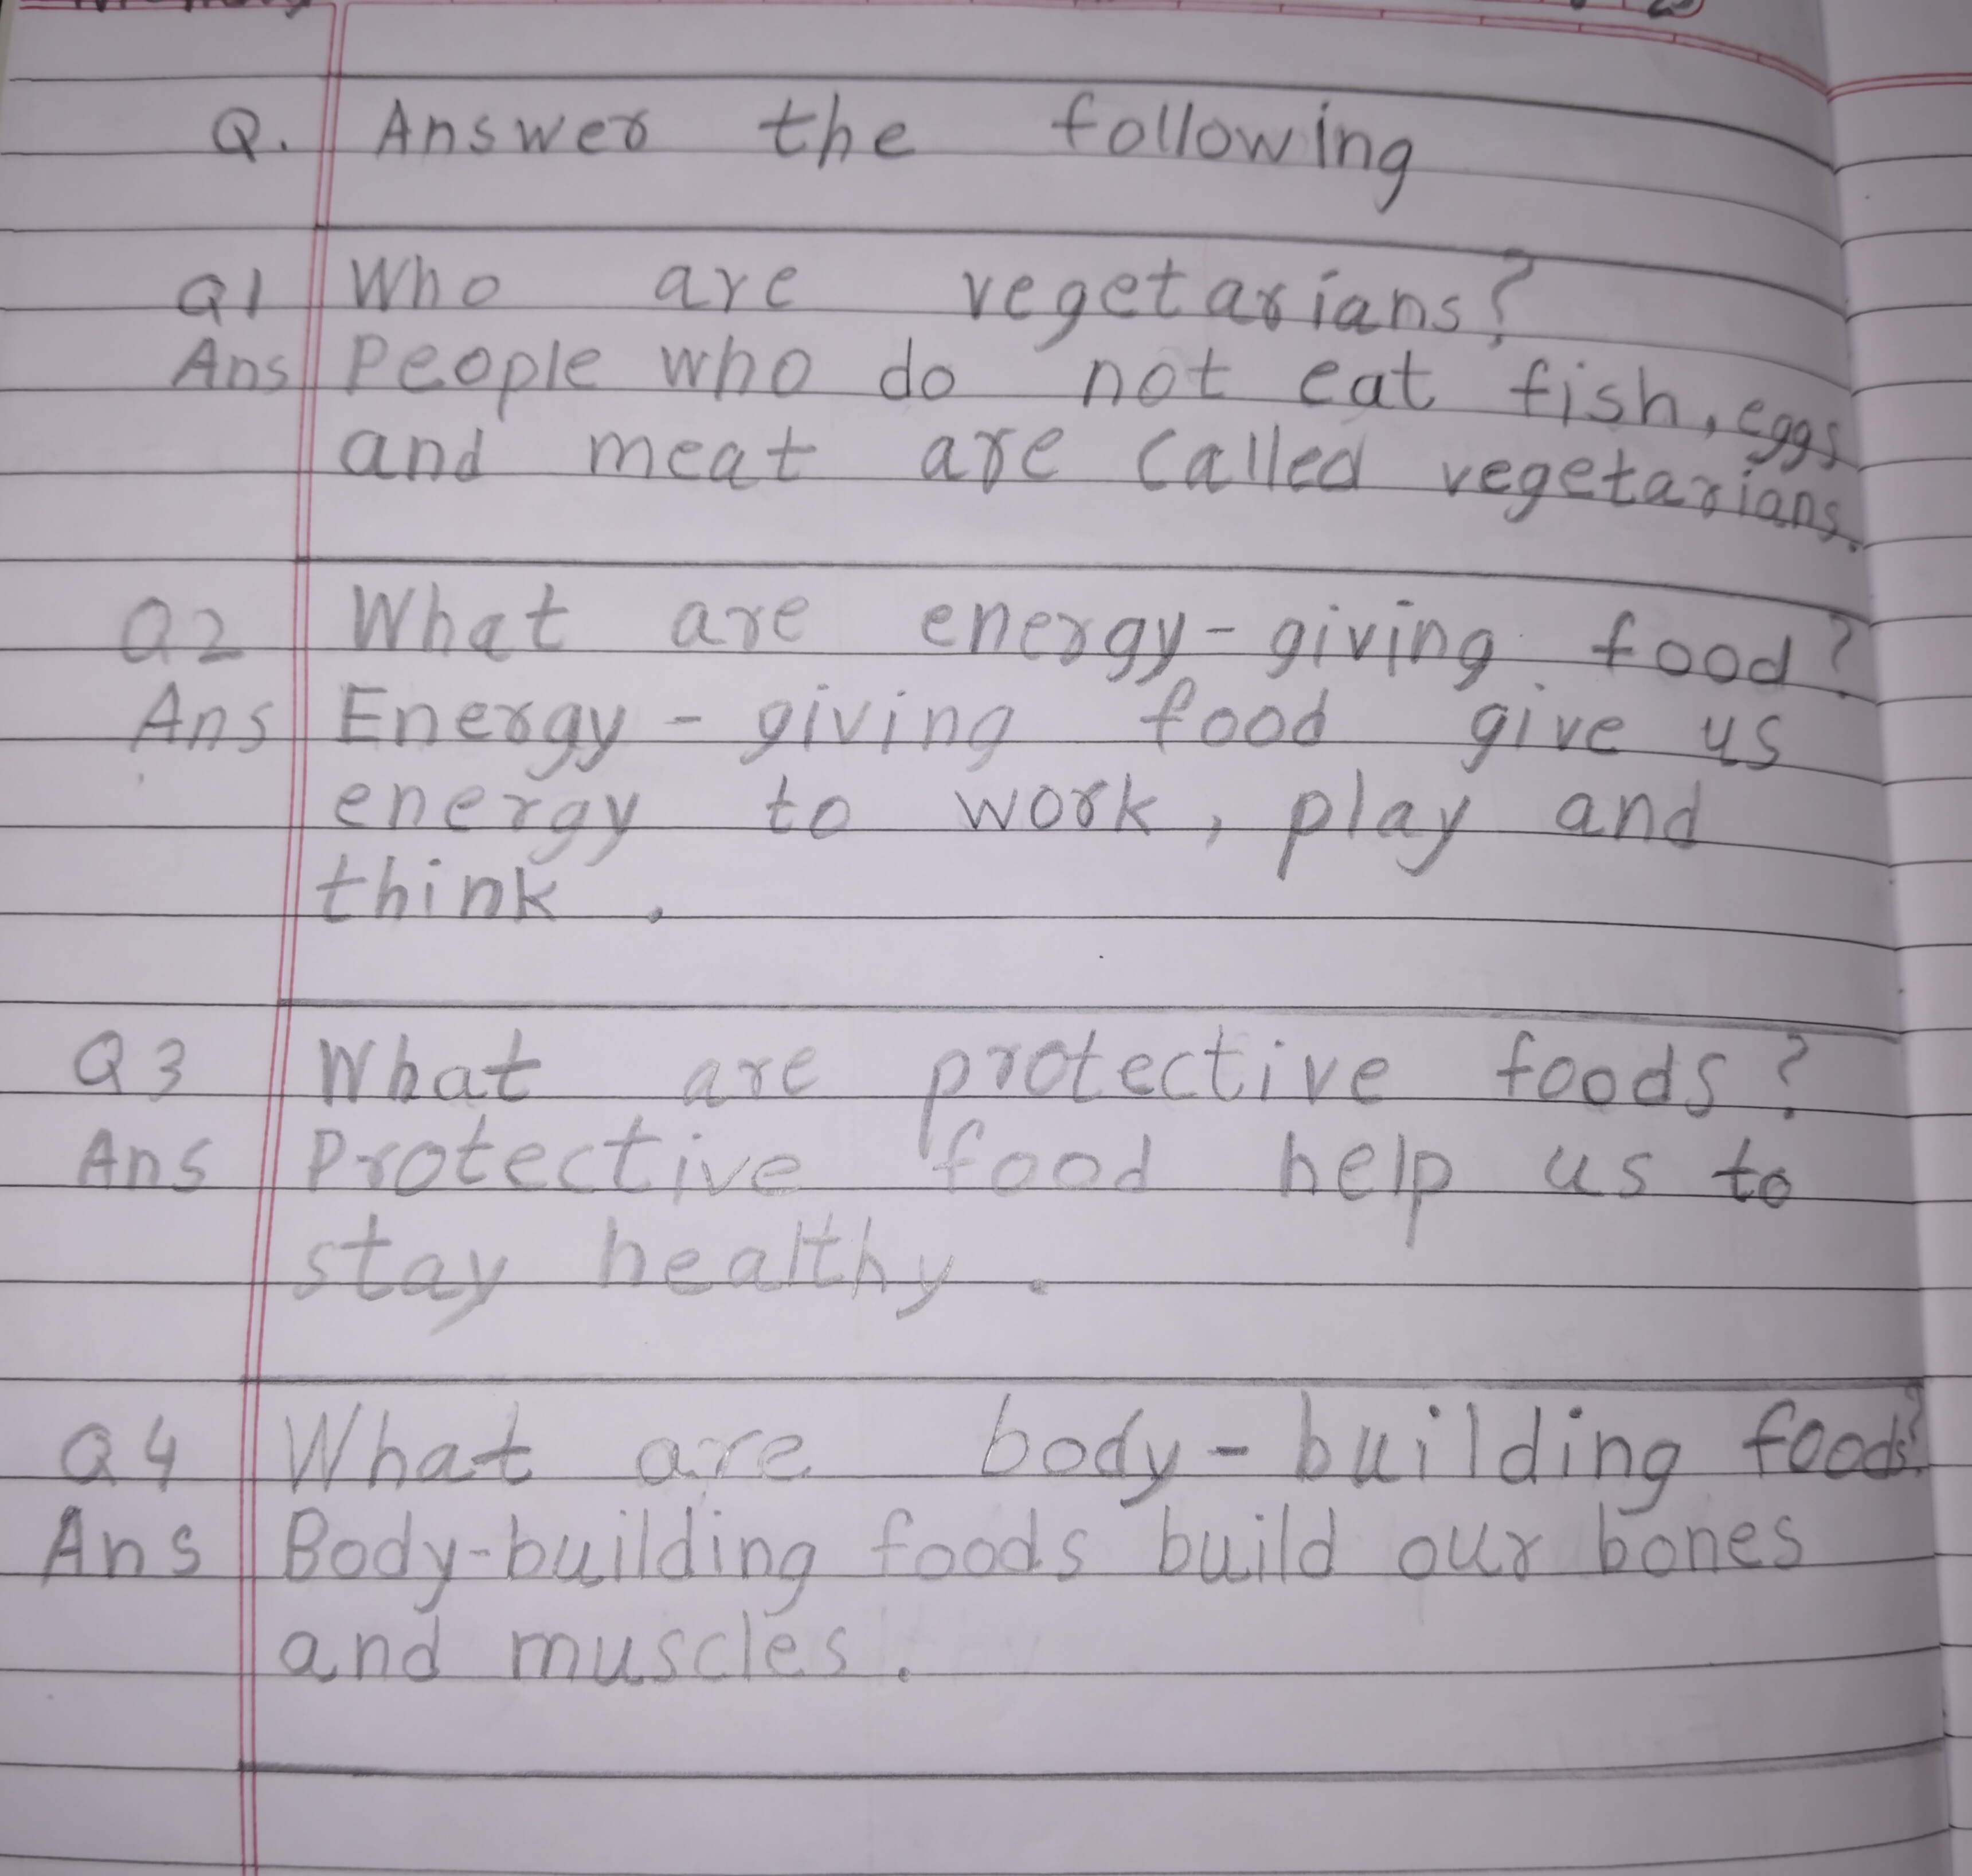 Q. Answer the following
Q1 Who are vegetarians?
Ans People who do not eat fish, eggs
and meat are called vegetarians.
Q2 What are energy-giving food?
Ans Energy - giving food give us
energy to work, play and
think.
Q3 What are protective foods?
Ans Protective food help us to
stay healthy.
Q4 What are body-building foods?
Ans Body-building foods build our bones
and muscles.